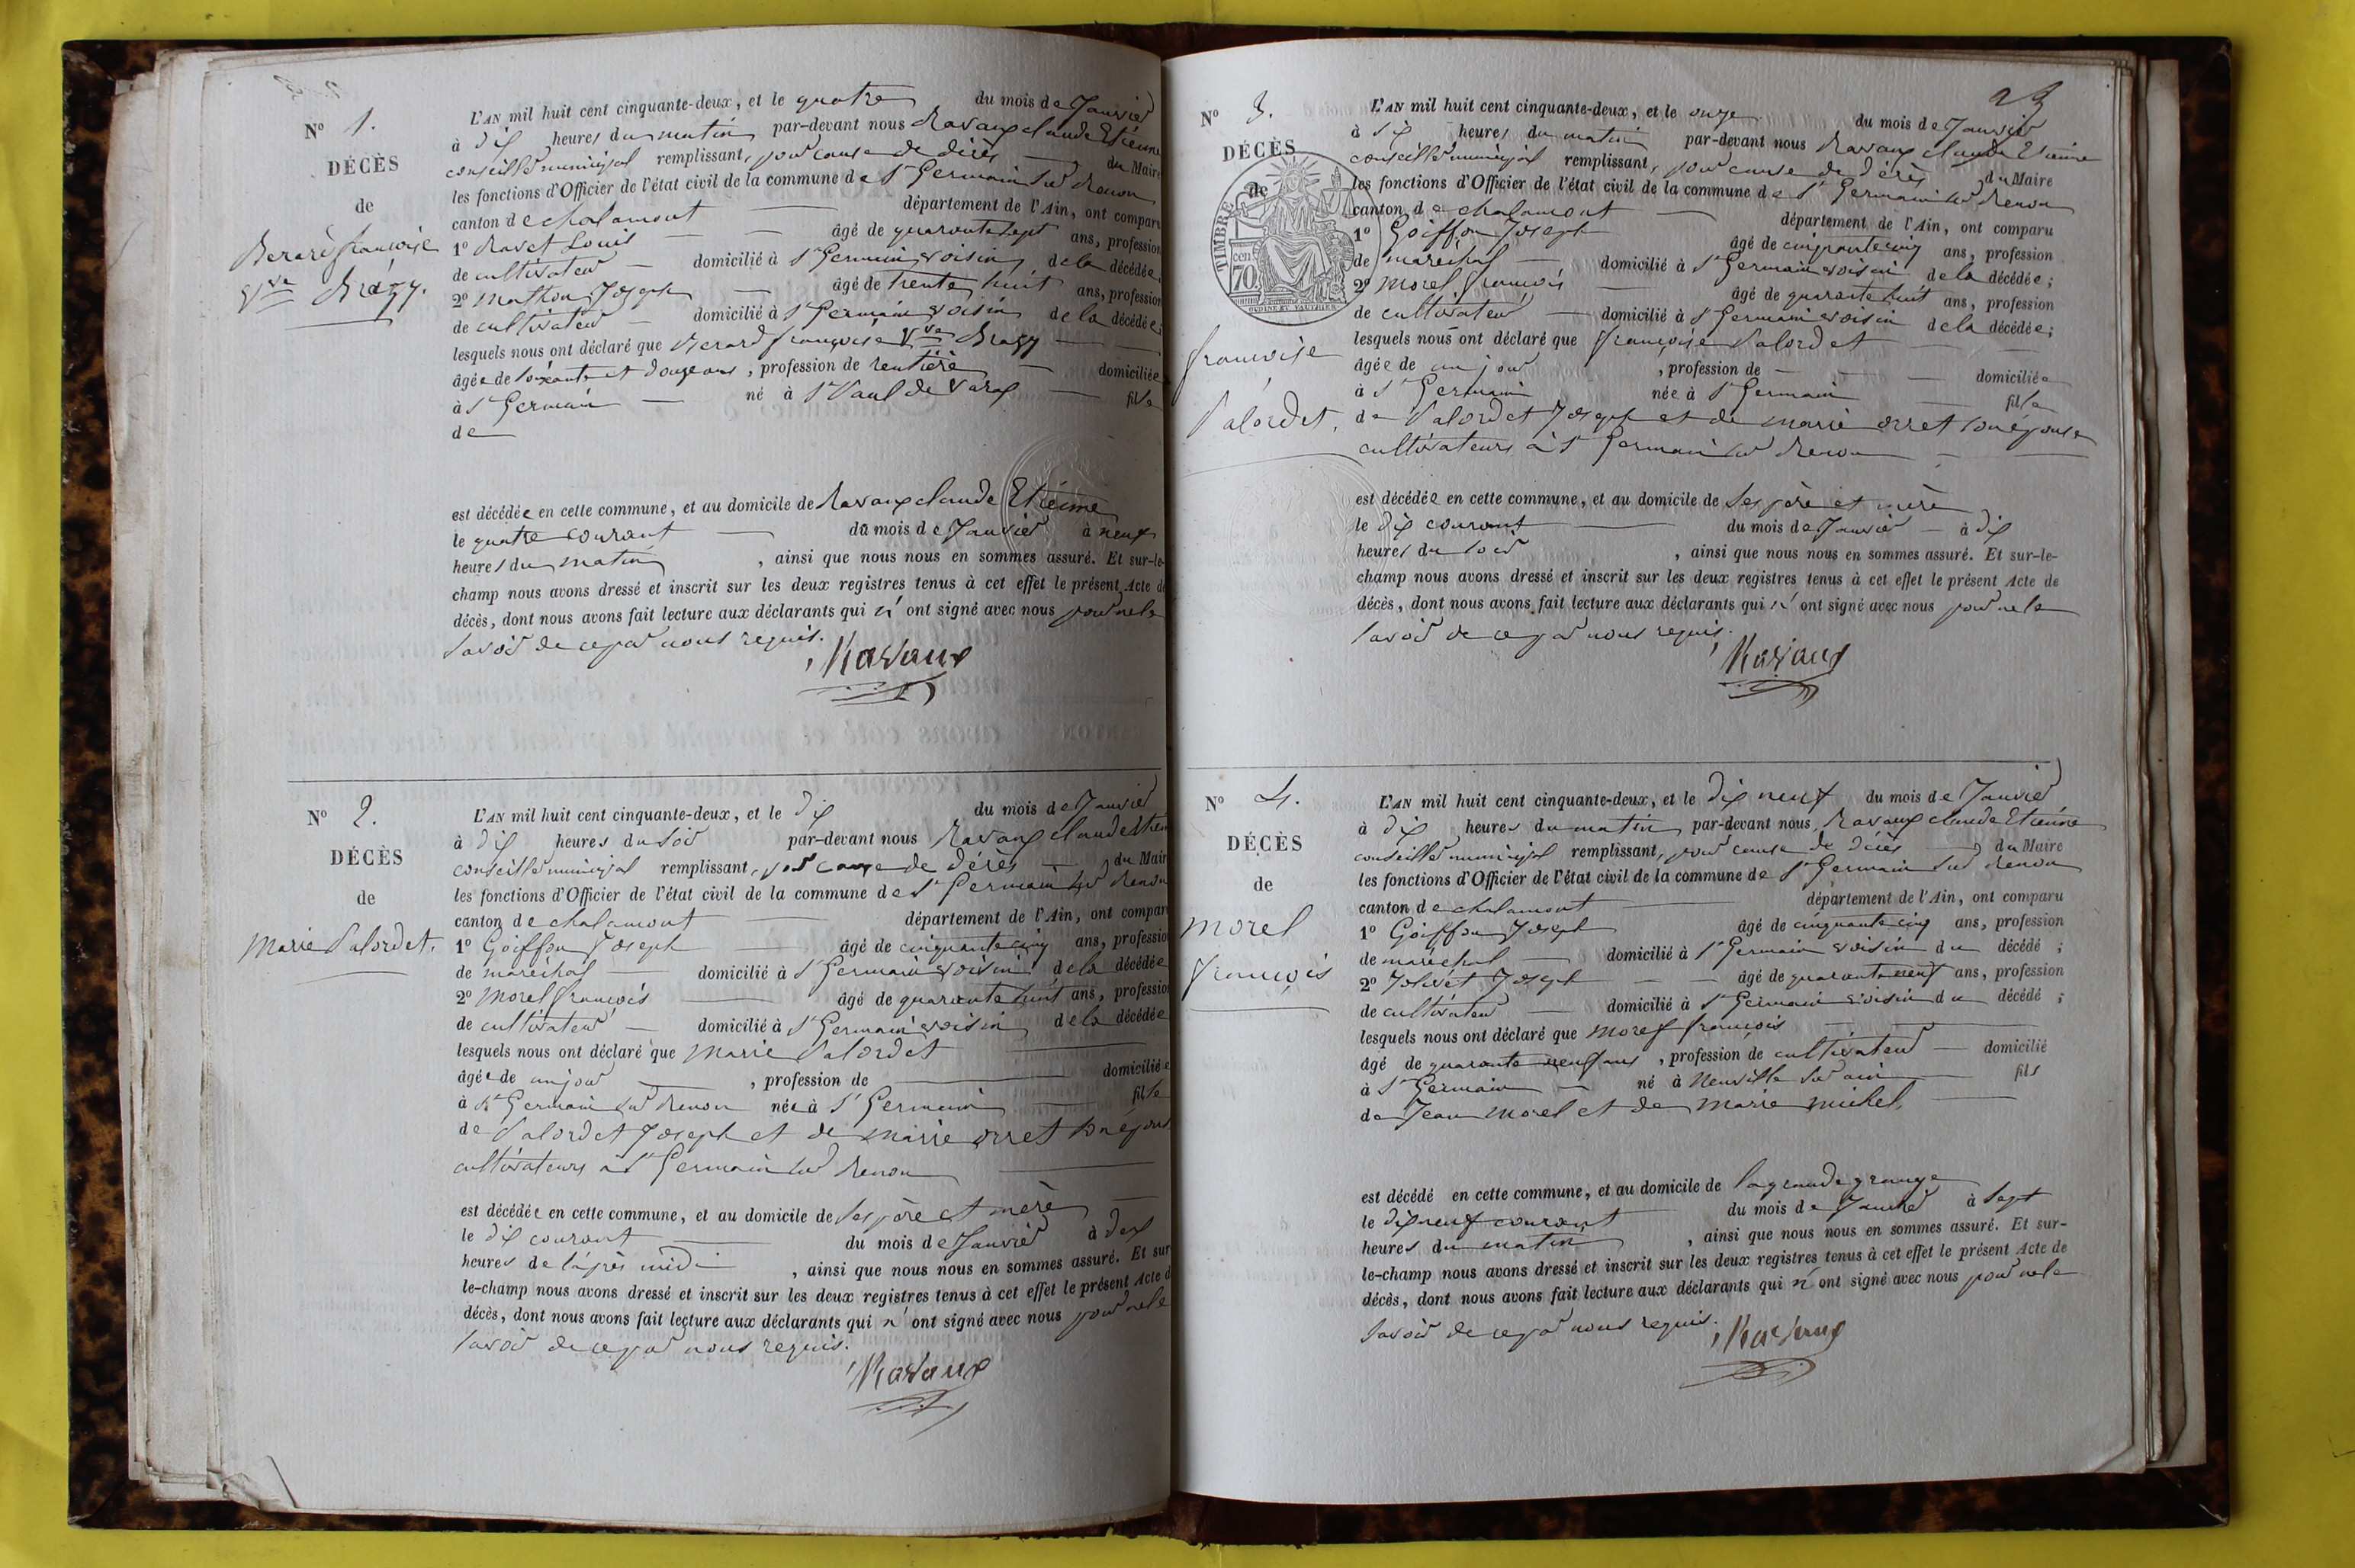 N° 1.
DÉCÈS
de
Berard françoise
Vve Brazy.
L'AN mil huit cent cinquante-deux, et le quatre du mois de Janvier
à dix heures du matin par-devant nous Ravaux claude Etienne
conseiller municipal remplissant, pour cause de décès du Maire
les fonctions d'Officier de l'état civil de la commune de St Germain sur Renon
canton de chalamont département de l'Ain, ont comparu
1° Ravet Louis âgé de quarante sept ans, profession
de cultivateur domicilié à St Germain voisin de la décédée,
2° Mathon Joseph âgé de trente huit ans, profession
de cultivateur domicilié à St Germain voisin de la décédée;
lesquels nous ont déclaré que Berard françoise Vve Brazy
âgée de soixante et douze ans, profession de rentière domiciliée
à St Germain né à St Paul de Varax fille
de
est décédée en cette commune, et au domicile de Ravaux claude Etienne
le quatre courant du mois de Janvier à neuf
heures du matin, ainsi que nous nous en sommes assuré. Et sur-le-
champ nous avons dressé et inscrit sur les deux registres tenus à cet effet le présent Acte de
décès, dont nous avons fait lecture aux déclarants qui n'ont signé avec nous pour ne le
savoir de ce par nous requis.
Ravaux
N° 2.
DÉCÈS
de
Marie Palordet.
L'AN mil huit cent cinquante-deux, et le dix du mois de Janvier
à dix heures du soir par-devant nous Ravaux claude Etien
conseiller municipal remplissant, pour cause de décès du Mair
les fonctions d'Officier de l'état civil de la commune de St Germain sur Renon
canton de chalamont département de l'Ain, ont compar
1° Goiffon Joseph âgé de cinquante cinq ans, professio
de maréchal domicilié à St Germain voisin de la décédée
2° Morel françois âgé de quarante huit ans, professio
de cultivateur domicilié à St Germain voisin de la décédée
lesquels nous ont déclaré que Marie Palordet
âgée de un jour, profession de domiciliée
à St Germain sur Renon née à St Germain fille
de Palordet Joseph et de marie orset son épous
cultivateurs à St Germain sur Renon
est décédée en cette commune, et au domicile de ses père et mère
le dix courant du mois de Janvier à deux
heures de l'après midi, ainsi que nous nous en sommes assuré. Et sur
le-champ nous avons dressé et inscrit sur les deux registres tenus à cet effet le présent Acte d
décès, dont nous avons fait lecture aux déclarants qui n'ont signé avec nous pour ne le
savoir de ce par nous requis.
Ravaux
23
N° 3.
DÉCÈS
de
TIMBRE
70 cen
françoise
Palordet.
L'AN mil huit cent cinquante-deux, et le onze du mois de Janvier
à dix heures du matin par-devant nous Ravaux claude Etienne
conseiller municipal remplissant, pour cause de décès du Maire
les fonctions d'Officier de l'état civil de la commune de St Germain sur Renon
canton de chalamont département de l'Ain, ont comparu
1° Goiffon Joseph âgé de cinquante cinq ans, profession
de maréchal domicilié à St Germain voisin de la décédée;
2° Morel françois âgé de quarante huit ans, profession
de cultivateur domicilié à St Germain voisin de la décédée;
lesquels nous ont déclaré que françoise Palordet
âgée de un jour, profession de domiciliée
à St Germain née à St Germain fille
de Palordet Joseph et de marie orset son épouse
cultivateurs à St Germain sur Renon
est décédée en cette commune, et au domicile de ses père et mère
le dix courant du mois de Janvier à dix
heures du soir, ainsi que nous nous en sommes assuré. Et sur-le-
champ nous avons dressé et inscrit sur les deux registres tenus à cet effet le présent Acte de
décès, dont nous avons fait lecture aux déclarants qui n'ont signé avec nous pour ne le
savoir de ce par nous requis.
Ravaux
N° 4.
DÉCÈS
de
morel
françois
L'AN mil huit cent cinquante-deux, et le dix neuf du mois de Janvier
à dix heures du matin par-devant nous, Ravaux claude Etienne
conseiller municipal remplissant, pour cause de décès du Maire
les fonctions d'Officier de l'état civil de la commune de St Germain sur Renon
canton de chalamont département de l'Ain, ont comparu
1° Goiffon Joseph âgé de cinquante cinq ans, profession
de maréchal domicilié à St Germain voisin du décédé;
2° Jolivet Joseph âgé de quarante neuf ans, profession
de cultivateur domicilié à St Germain voisin du décédé;
lesquels nous ont déclaré que morel françois
âgé de quarante neuf ans, profession de cultivateur domicilié
à St Germain né à Neuville sur ain fils
de Jean Morel et de Marie michel,
est décédé en cette commune, et au domicile de la grande grange
le dix neuf courant du mois de Janvier à sept
heures du matin, ainsi que nous nous en sommes assuré. Et sur-
le-champ nous avons dressé et inscrit sur les deux registres tenus à cet effet le présent Acte de
décès, dont nous avons fait lecture aux déclarants qui n'ont signé avec nous pour ne le
savoir de ce par nous requis.
Ravaux